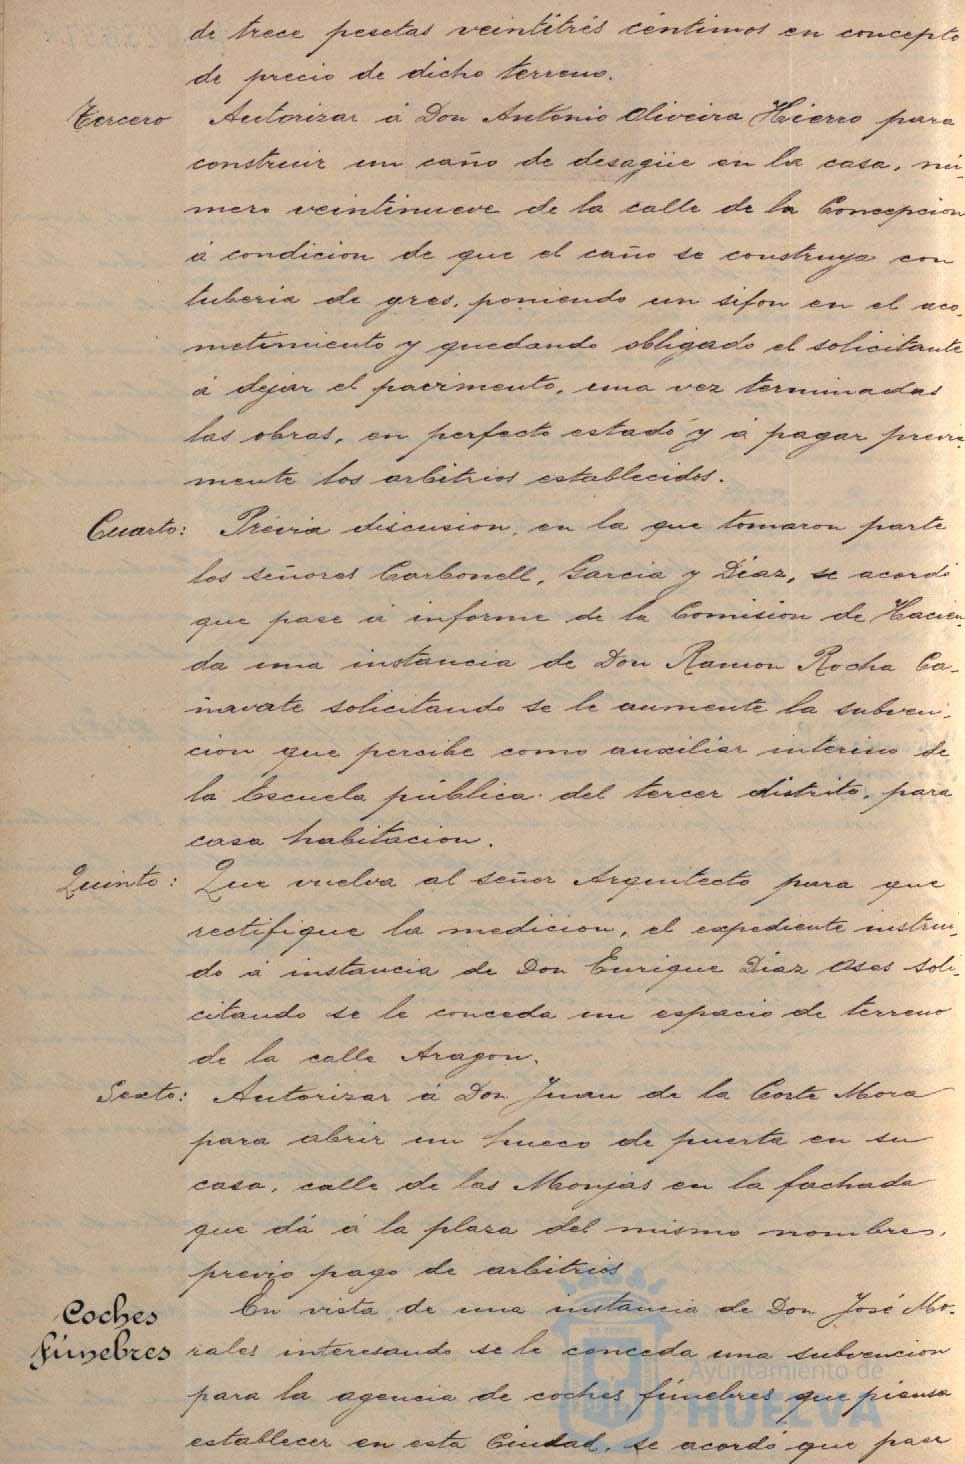 de trece pesetas veintitrés céntimos en concepto
de precio de dicho terreno.
Tercero Autorizar á Don Antonio Oliveira Hierro para
construir un caño de desagüe en la casa, nú-
mero veintinueve de la calle de la Concepcion
á condicion de que el caño se construya con
tuberia de gres, poniendo un sifon en el aco-
metimiento y quedando obligado el solicitante
á dejar el pavimento, una vez terminadas
las obras, en perfecto estado y á pagar previa-
mente los arbitrios establecidos.
Cuarto: Prévia discusion, en la que tomaron parte
los señores Carbonell, Garcia y Diaz, se acordó
que pase á informe de la Comision de Hacien-
da una instancia de Don Ramon Rocha Ca-
ñavate solicitando se le aumente la subven-
cion que percibe como auxiliar interino de
la Escuela pública del tercer distrito, para
casa habitacion.
Quinto: Que vuelva al señor Arquitecto para que
rectifique la medicion, el expediente instrui-
do á instancia de Don Enrique Diaz Oses soli-
citando se le conceda un espacio de terreno
de la calle Aragon.
Sexto: Autorizar á Don Juan de la Corte Mora
para abrir un hueco de puerta en su
casa, calle de las Monjas en la fachada
que dá á la plaza del mismo nombres,
previo pago de arbitrios
Coches
Fúnebres
En vista de una instancia de Don José Mo-
rales interesando se le conceda una subvencion
para la agencia de coches fúnebres que piensa
establecer en esta Ciudad, se acordó que pase
Ayuntamiento de
HUELVA